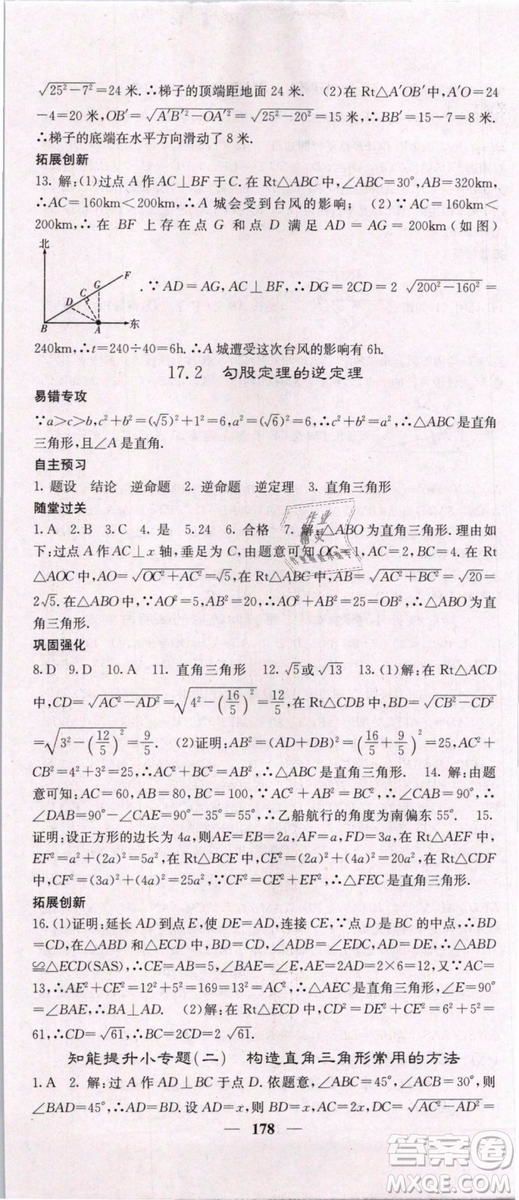 √(25²−7²)=24 米.∴梯子的顶端距地面 24 米. (2)在 Rt△A′OB′中,A′O=24
−4=20 米,OB′=√(A′B′²−OA′²)=√(25²−20²)=15 米,∴BB′=15−7=8 米.
∴梯子的底端在水平方向滑动了 8 米.
拓展创新
13. 解:(1)过点 A 作 AC⊥BF 于 C. 在 Rt△ABC 中,∠ABC=30°,AB=320km,
∴AC=160km<200km,∴A 城会受到台风的影响; (2)∵AC=160km<
200km,∴在 BF 上存在点 G 和点 D 满足 AD=AG=200km(如图)
北
F
G
C
D
B
A
东
. ∵AD=AG,AC⊥BF,∴DG=2CD=2√(200²−160²)=
240km,∴t=240÷40=6h.∴A 城遭受这次台风的影响有 6h.
17.2 勾股定理的逆定理
易错专攻
∵a>c>b,c²+b²=(√5)²+1²=6,a²=(√6)²=6,∴a²=b²+c²,∴△ABC 是直角
三角形,且∠A 是直角.
自主预习
1. 题设 结论 逆命题 2. 逆命题 逆定理 3. 直角三角形
随堂过关
1. A 2. B 3. C 4. 是 5. 24 6. 合格 7. 解:△ABO 为直角三角形. 理由如
下:过点 A 作 AC⊥x 轴,垂足为 C,由题意可知 OC=2,AC=4. 在 Rt△AOC
中,由勾股定理,得 AO=√(OC²+AC²)=√(2²+4²)=√20=
2√5. 在△ABO 中,∵AO²+AB²=20+5=25=OB²,∴△ABO 为直
角三角形.
巩固强化
8. D 9. D 10. A 11. 直角三角形 12. √5或√13 13. (1)解:在 Rt△ACD
中,CD=√(AC²−AD²)=√(4²−(16/5)²)=12/5,在 Rt△CDB 中,BD=√(CB²−CD²)
=√(3²−(12/5)²)=9/5. (2)证明:AB²=(AD+DB)²=(16/5+9/5)²=25,AC²+
BC²=4²+3²=25,∴AC²+BC²=AB²,∴△ABC 是直角三角形. 14. 解:由题
意可知:AC=60,AB=80,BC=100,∴AC²+AB²=BC²,∴∠CAB=90°,
∠EAB=180°−∠CAB−∠CAF=55°,∴乙船航行的角度为南偏东 55°. 15.
证明:设正方形的边长为 4a,则 AE=EB=2a,AF=a,FD=3a,在 Rt△AEF 中,
EF²=a²+(2a)²=5a²,在 Rt△BCE 中,CE²=(2a)²+(4a)²=20a²,在 Rt△CDF
中,CF²=(3a)²+(4a)²=25a²,∵CF²=CE²+EF²,∴△FEC 是直角三角形.
拓展创新
16. (1)证明:延长 AD 到点 E,使 DE=AD,连结 CE,∵D 点是 BC 的中点,∴BD
=CD,在△ABD 和△ECD 中,BD=CD,∠ADB=∠CDE,AD=ED,∴△ABD
≌△ECD(SAS),∴∠BAE=∠E,AB=CE=5,AE=2AD=2×6=12,又∵AC=
13,∴AE²+CE²=AC²,∴∠E=90°=∠BAE,∴AB⊥AD. (2)解:在 Rt△CED
中,CD=√61,∴BD=CD=√61,∴BC=2√61.
知能提升小专题(二) 构造直角三角形常用的方法
1. A 2. 解:过 C 作 CD⊥AB 于点 D. 依题意,∠ABC=60°+30°=90°,
∠BAD=45°,则 AD=CD. ∵AC=50,∴在 Rt△ACD 中,CD=√(AC²−AD²)=
178
答案圈
MXQE.COM